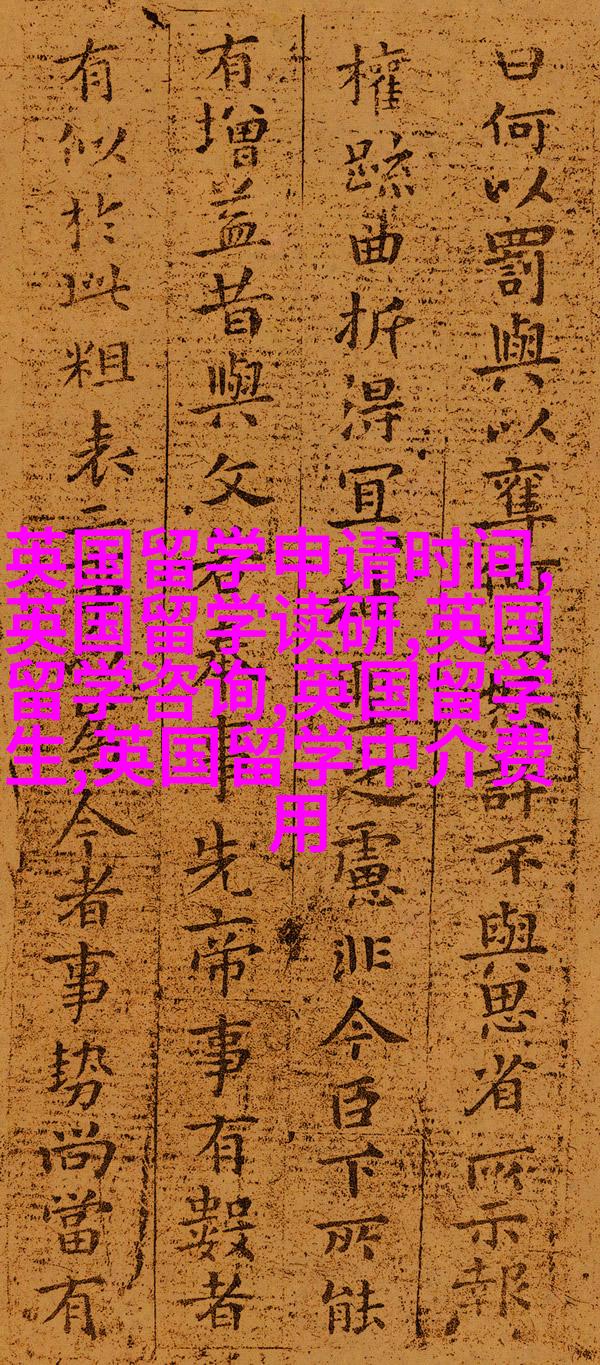 曰何以罰與以奪許不與思省所示報
權疏曲折得宜之慮非今臣下所能
有增益昔與文事先帝事有數者
有似於此粗表二今者事勢尚當有
英国留学申请时间,
英国留学读研,英国
留学咨询,英国留学
生,英国留学中介费
用